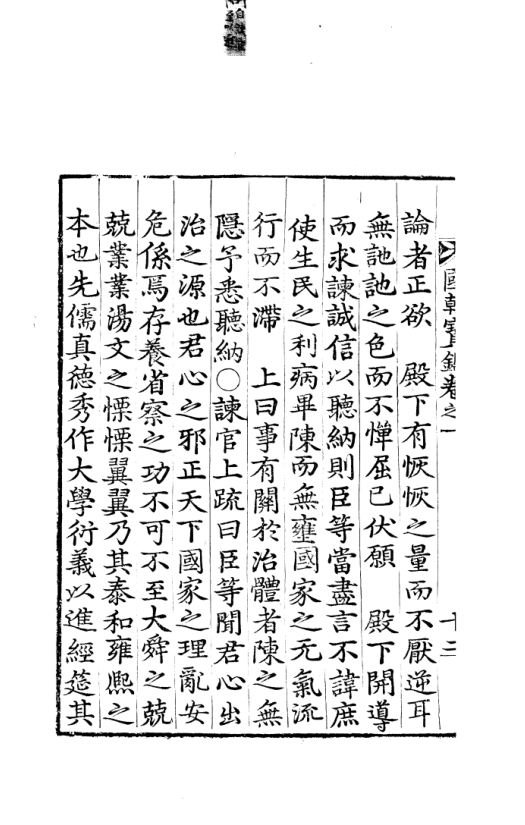 國朝寶鑑卷之一 十二
論者正欲 殿下有恢恢之量而不厭逆耳
無訑訑之色而不憚屈已伏願 殿下開導
而求諫誠信以聽納則臣等當盡言不諱庶
使生民之利病畢陳而無壅國家之元氣流
行而不滯 上曰事有關於治體者陳之無
隱予悉聽納○諫官上疏曰臣等聞君心出
治之源也君心之邪正天下國家之理亂安
危係焉存養省察之功不可不至大舜之兢
兢業業湯文之慄慄翼翼乃其泰和雍熙之
本也先儒真德秀作大學衍義以進經筵其